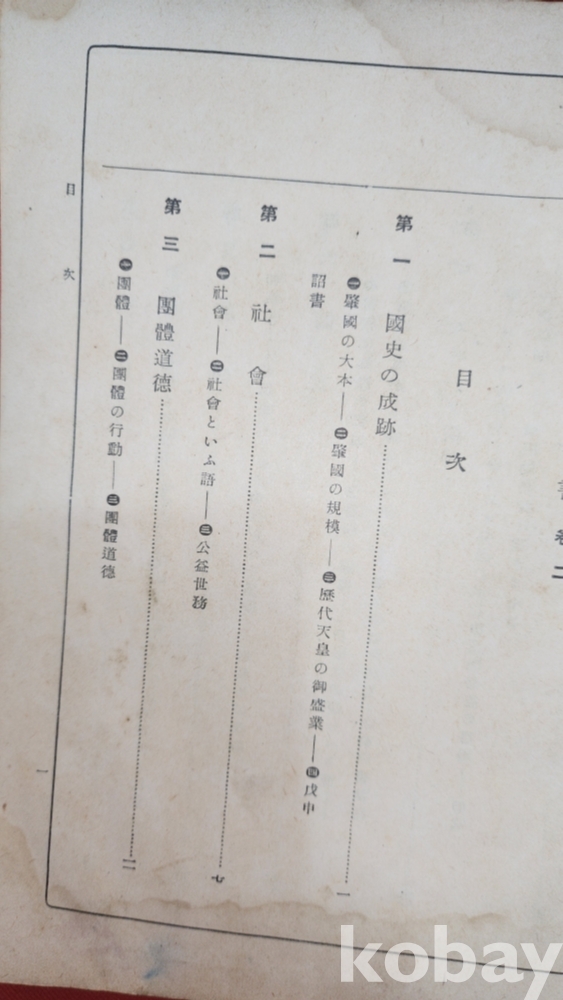 卷二
目次
第一 國史の成跡……一
㊀肇國の大本――㊁肇國の規模――㊂歷代天皇の御盛業――㊃戊申
詔書
第二 社會……七
㊀社會――㊁社會といふ語――㊂公益世務
第三 團體道德……
㊀團體――㊁團體の行動――㊂團體道德
目次
一
kobay